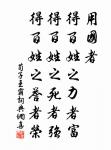 用國者
得百姓之力者富
得百姓之死者強
得百姓之譽者榮
荀子王霸句典網